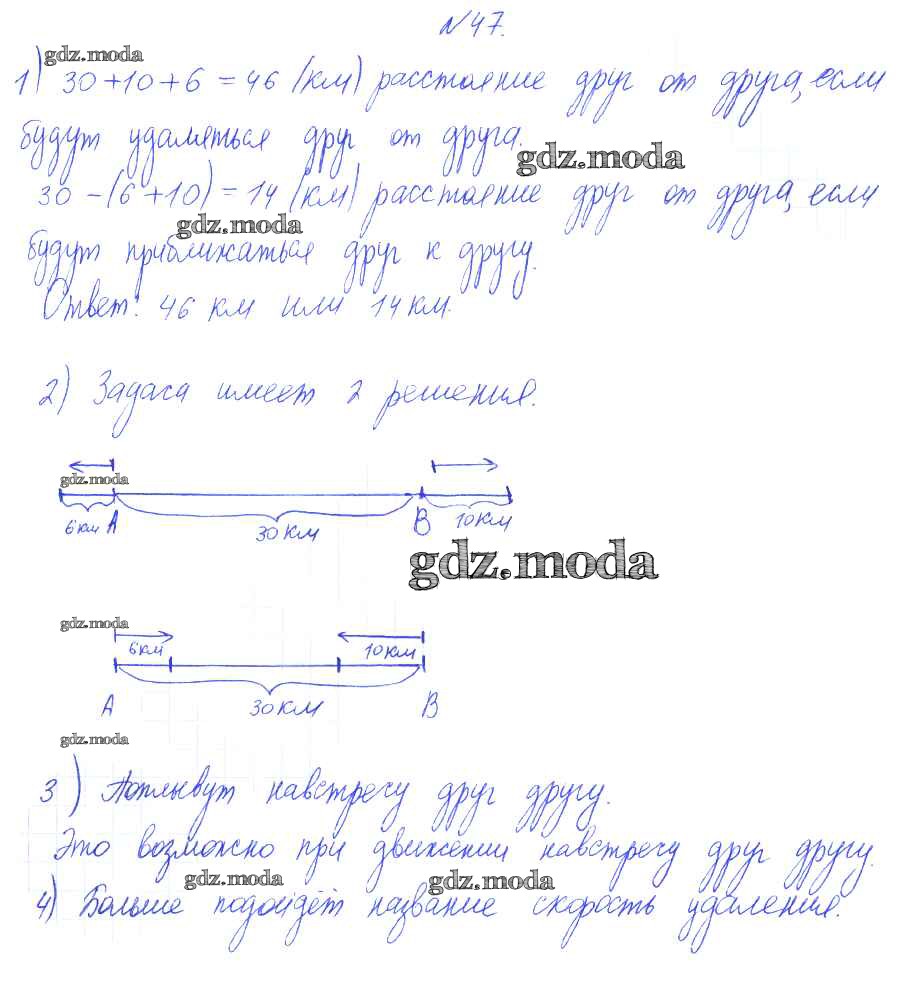 №47.
gdz.moda
1) 30+10+6=46 (км) расстояние друг от друга, если
будут удаляться друг от друга.
gdz.moda
30-(6+10)=14 (км) расстояние друг от друга, если
gdz.moda
будут приближаться друг к другу.
Ответ: 46 км или 14 км.
2) Задача имеет 2 решения.
gdz.moda
6 км A 30 км B 10 км
gdz.moda
gdz.moda
6 км 10 км
A 30 км B
gdz.moda
3) Поплывут навстречу друг другу.
Это возможно при движении навстречу друг другу.
gdz.moda gdz.moda
4) Больше подойдёт название скорость удаления.